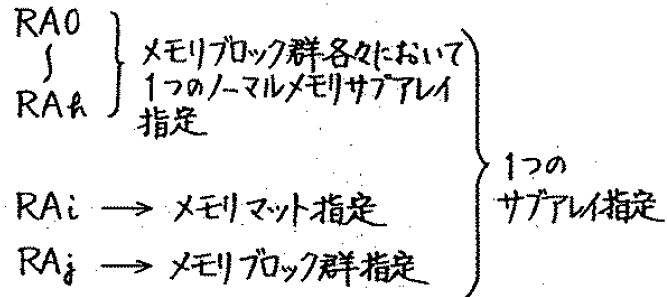 RA0
∫
RAh
メモリブロック群各々において
1つのノーマルメモリサブアレイ
指定
RAi → メモリマット指定
RAj → メモリブロック群指定
1つの
サブアレイ指定